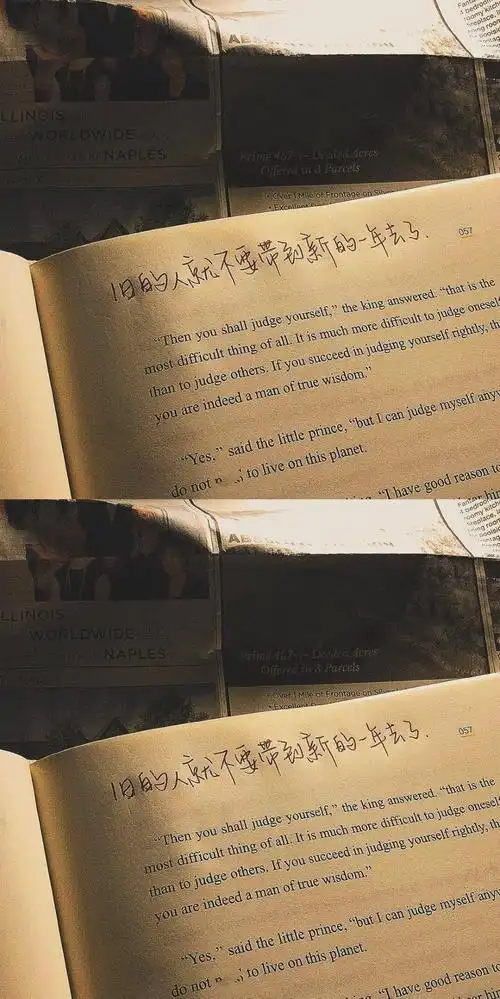 ILLINOIS
WORLDWIDE
NAPLES
Prime 467 – Deeded Acres
Offered in 3 Parcels
• Over 1 Mile of Frontage on
• Excellent
旧的人就不要带到新的一年去了.
057
"Then you shall judge yourself," the king answered. "that is the
most difficult thing of all. It is much more difficult to judge oneself
than to judge others. If you succeed in judging yourself rightly,
you are indeed a man of true wisdom."
"Yes," said the little prince, "but I can judge myself
do not to live on this planet.
"I have good reason to
ILLINOIS
WORLDWIDE
NAPLES
Prime 467 – Deeded Acres
Offered in 3 Parcels
• Over 1 Mile of Frontage on
• Excellent
旧的人就不要带到新的一年去了.
057
"Then you shall judge yourself," the king answered. "that is the
most difficult thing of all. It is much more difficult to judge oneself
than to judge others. If you succeed in judging yourself rightly,
you are indeed a man of true wisdom."
"Yes," said the little prince, "but I can judge myself
do not to live on this planet.
"I have good reason to